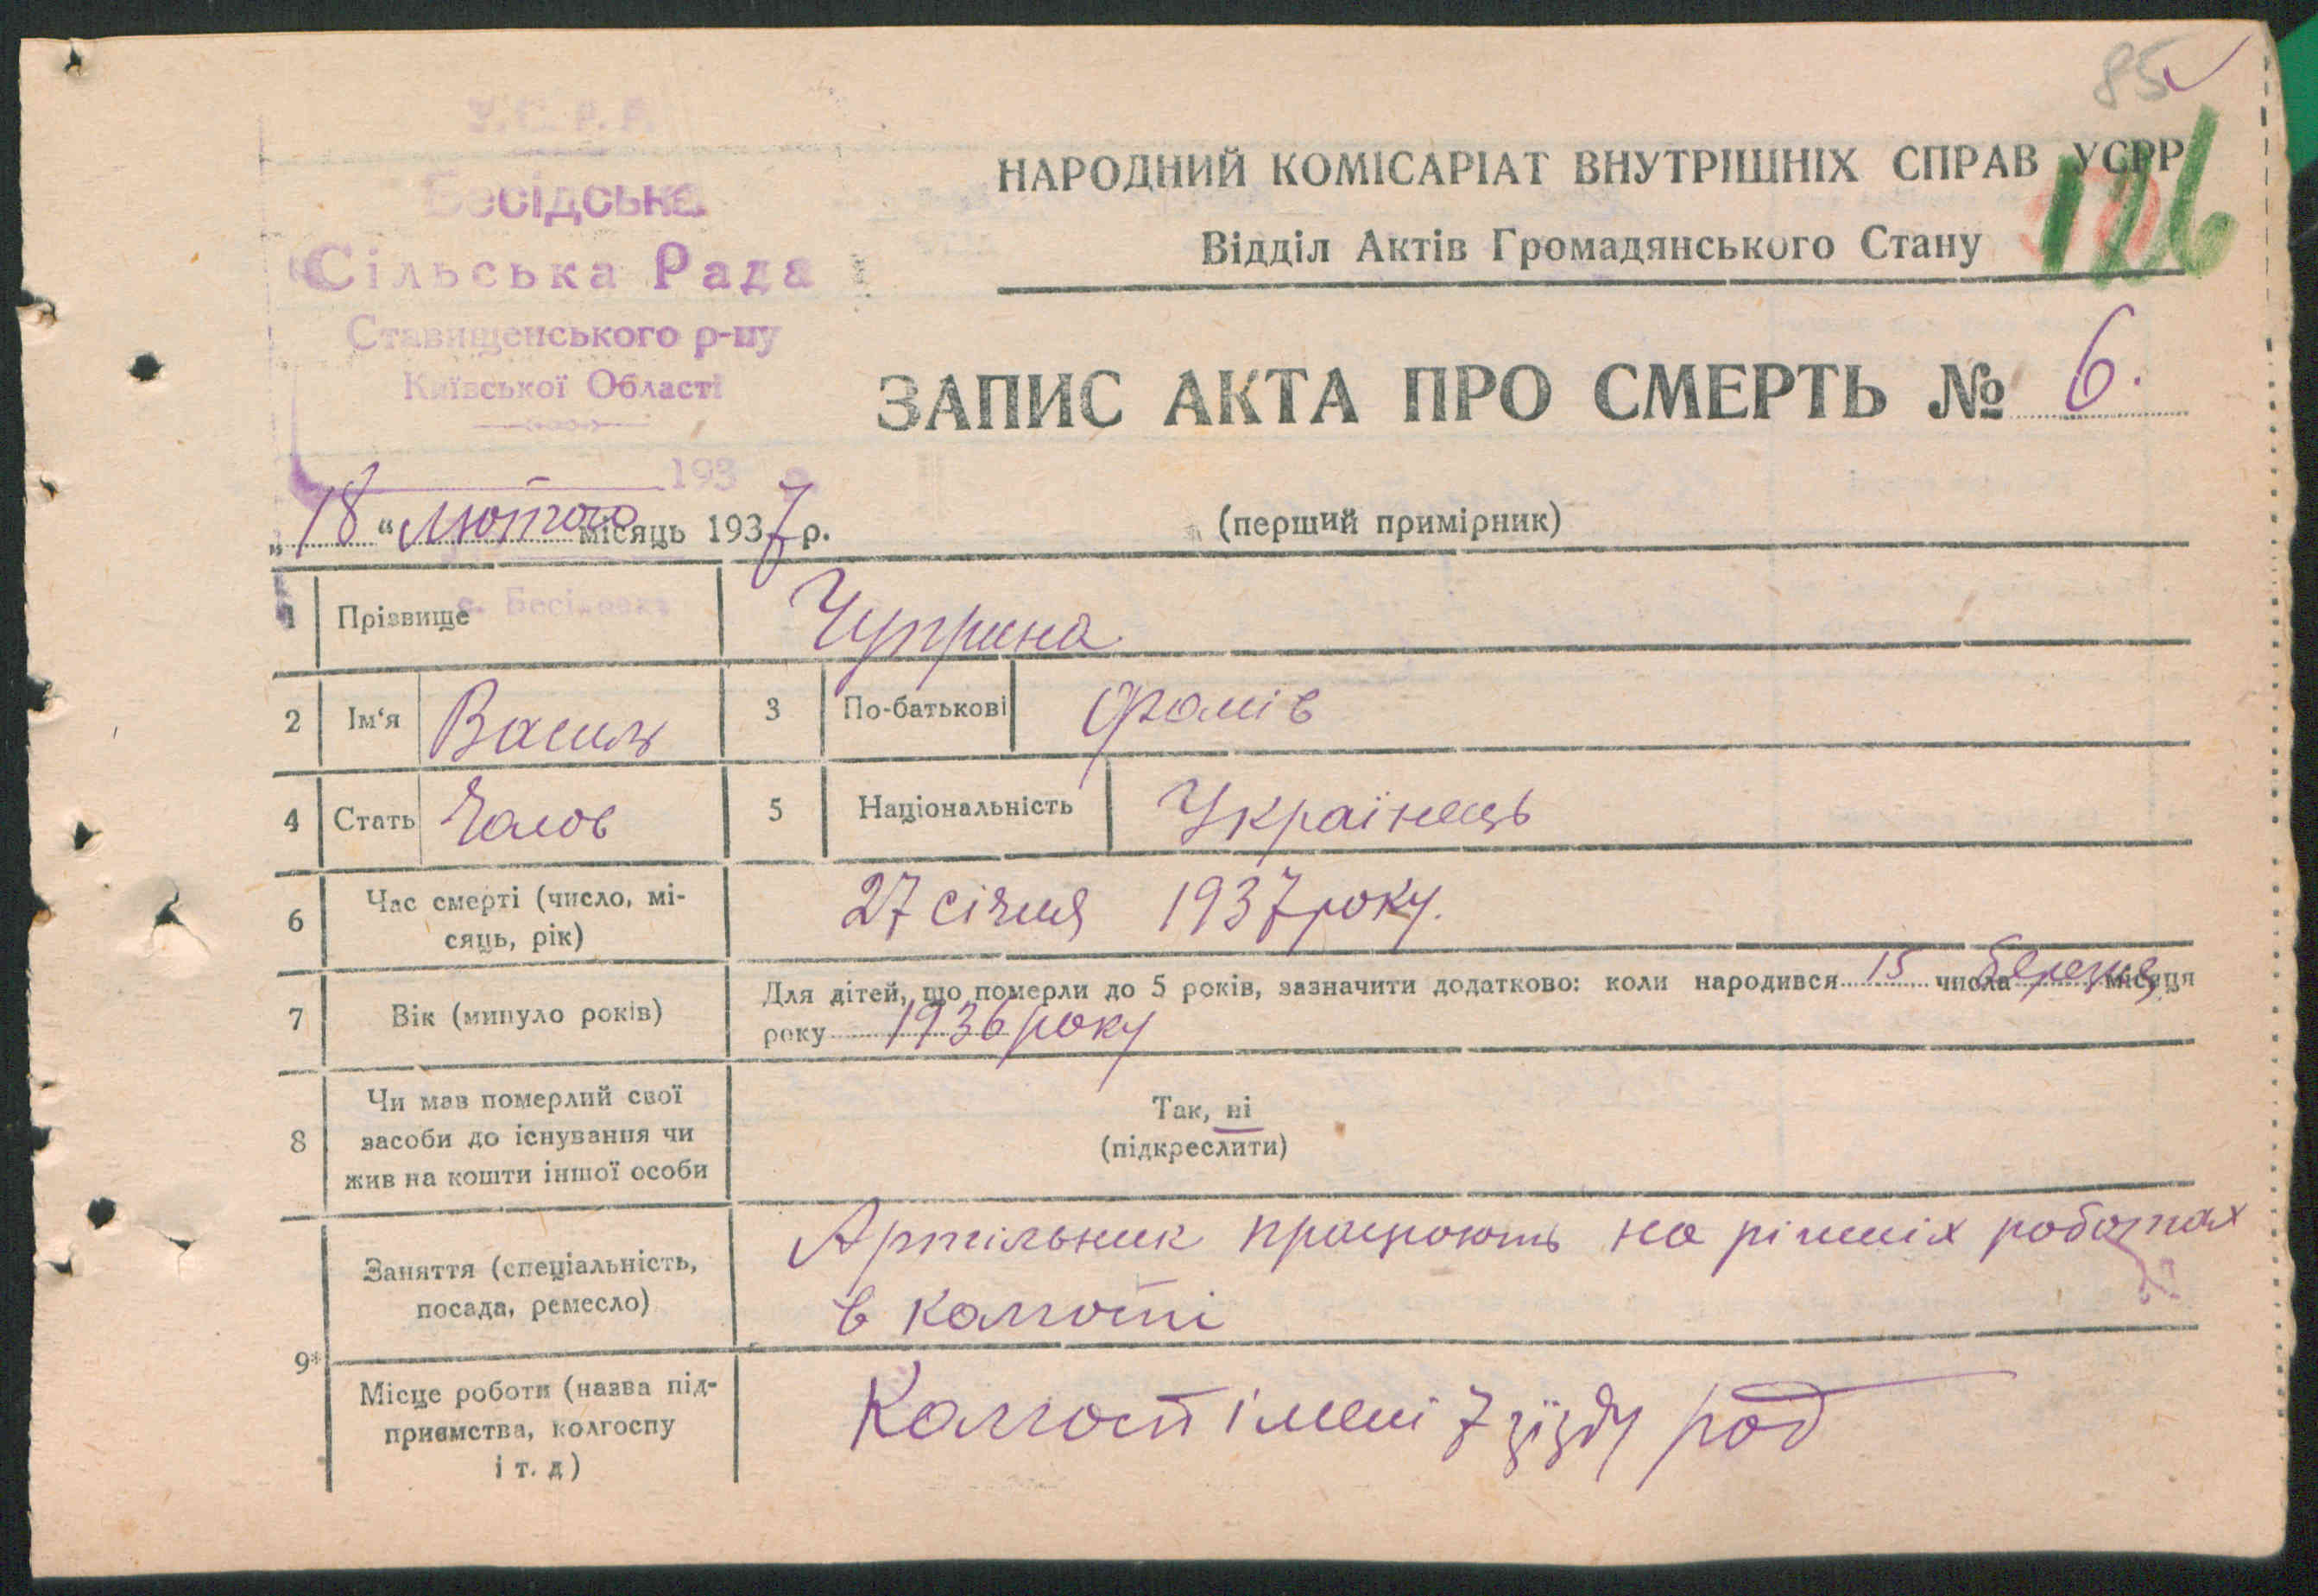 85
НАРОДНИЙ КОМІСАРІАТ ВНУТРІШНІХ СПРАВ УСРР
126
Відділ Актів Громадянського Стану
У.С.Р.Р.
Бесідська
Сільська Рада
Ставищенського р-ну
Київської Області
193
ЗАПИС АКТА ПРО СМЕРТЬ № 6.
„18“ Лютого місяць 1937 р.
(перший примірник)
1 Прізвище Чуприна
2 Ім‘я Василь 3 По-батькові Фомів
4 Стать Чолов 5 Національність Українець
6 Час смерті (число, мі-
сяць, рік) 27 січня 1937 року.
7 Вік (минуло років) Для дітей, що померли до 5 років, зазначити додатково: коли народився 15 числа березня місяця
року 1936 року
8 Чи мав померлий свої
засоби до існування чи
жив на кошти іншої особи
Так, ні
(підкреслити)
9* Заняття (спеціальність,
посада, ремесло)
Артільник працюють на різних роботах
в колгоспі
Місце роботи (назва під-
приємства, колгоспу
і т. д)
Колгосп імені 7 зїзду рад